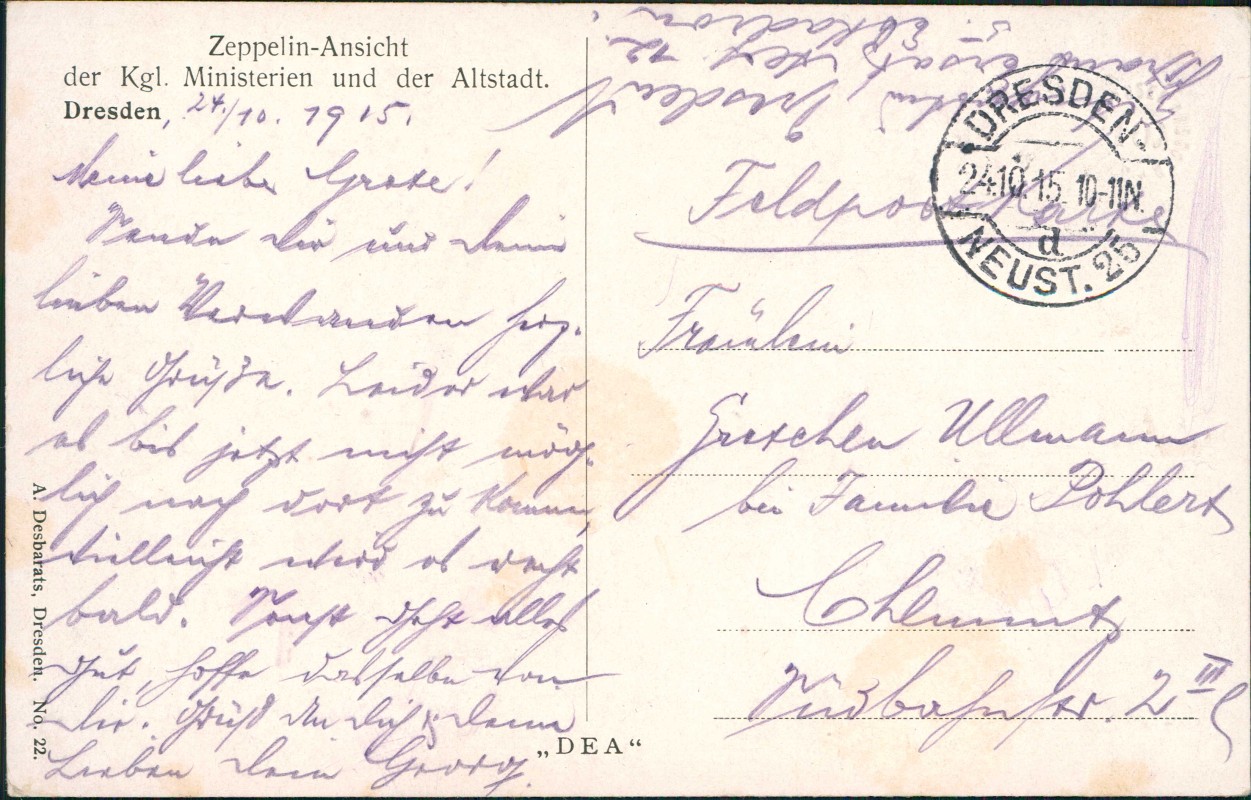 Zeppelin-Ansicht
der Kgl. Ministerien und der Altstadt.
Dresden, 24./10. 1915.
Meine liebe Grete!
Sende dir und deinen
lieben Verwandten herz-
liche Grüße. Leider war
es bis jetzt nicht mög-
lich nach dort zu kommen,
vielleicht wird es recht
bald. Sonst geht alles
gut, hoffe dasselbe von
dir. Gruß an dich & deine
Lieben dein Georg.
A. Desbarats, Dresden. No. 22.
„DEA“
Ersatz 12.
5. Eskadron.
Dresden
Feldpost Karte
DRESDEN-
24.10.15. 10-11N.
d
NEUST. 25
Fräulein
Gretchen Ullmann
bei Familie Pohlert
Chemnitz
Südbahnstr. 2 III